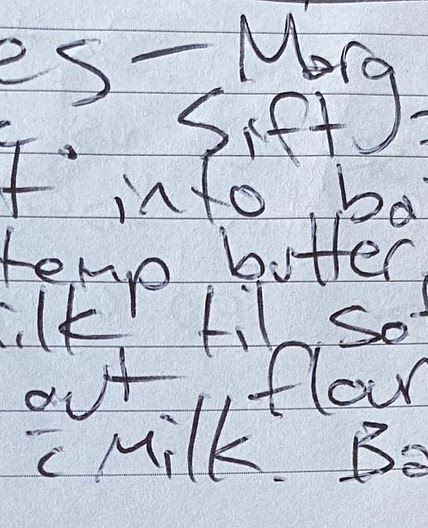 es - Marg
. Sift
t into ba
temp butter
ilk til so
out flour
c̄ Milk. Ba